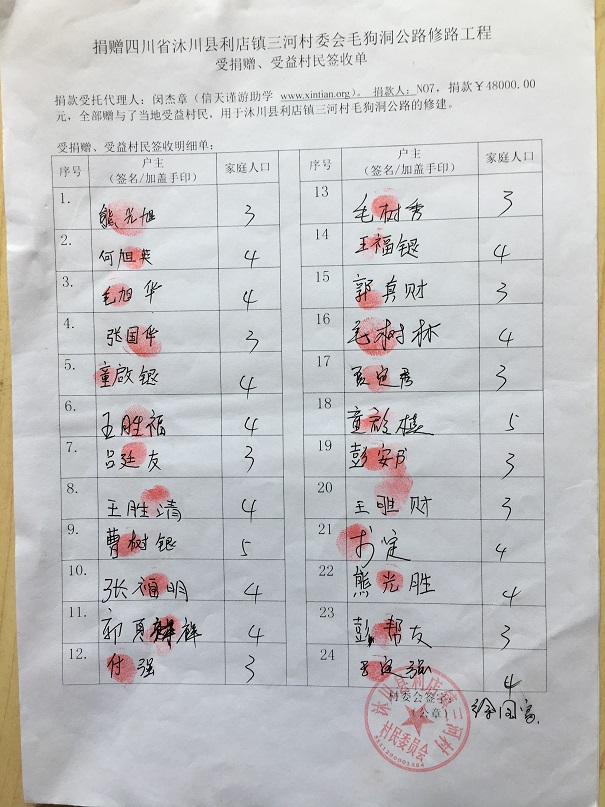 捐赠四川省沐川县利店镇三河村委会毛狗洞公路修路工程
受捐赠、受益村民签收单
捐款受托代理人：闵杰章（信天谨游助学 www.xintian.org）。捐款人：N07，捐款￥48000.00
元，全部赠与了当地受益村民，用于沐川县利店镇三河村毛狗洞公路的修建。
受捐赠、受益村民签收明细单：
序号 户主（签名/加盖手印） 家庭人口
1. 熊光旭 3
2. 何旭英 4
3. 毛旭华 4
4. 张国华 3
5. 童啟银 4
6. 王胜福 4
7. 吕廷友 3
8. 王胜清 4
9. 曹树银 5
10. 张福明 4
11. 郭真祥 4
12. 付强 3
序号 户主（签名/加盖手印） 家庭人口
13 毛树秀 3
14 王福银 4
15 郭真财 3
16 毛树林 4
17 定秀 3
18 童啟植 5
19 彭安 3
20 王胜财 3
21 定 4
22 熊光胜 4
23 彭帮友 3
24 定强 4
村委会签字
（公章）
徐国富
沐川县利店镇三河村
村民委员会